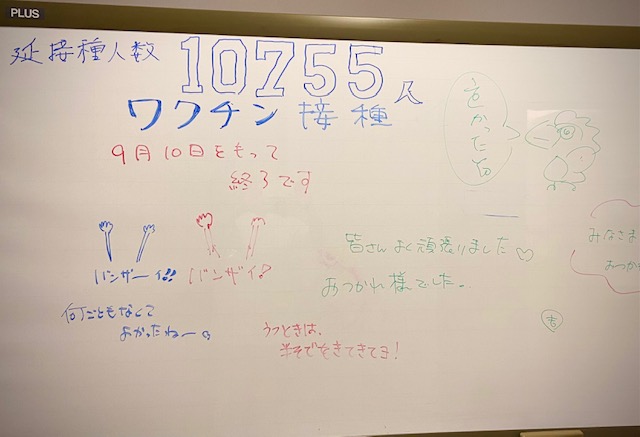 PLUS
延接種人数 10755人
ワクチン接種
9月10日をもって
終了です
良かったな
バンザーイ!!
バンザイ!
皆さんよく頑張りました♡
おつかれ様でした。
みなこま
おつか
何ごともなくて
よかったねー
うつときは、
半そでをきてきてヨ!